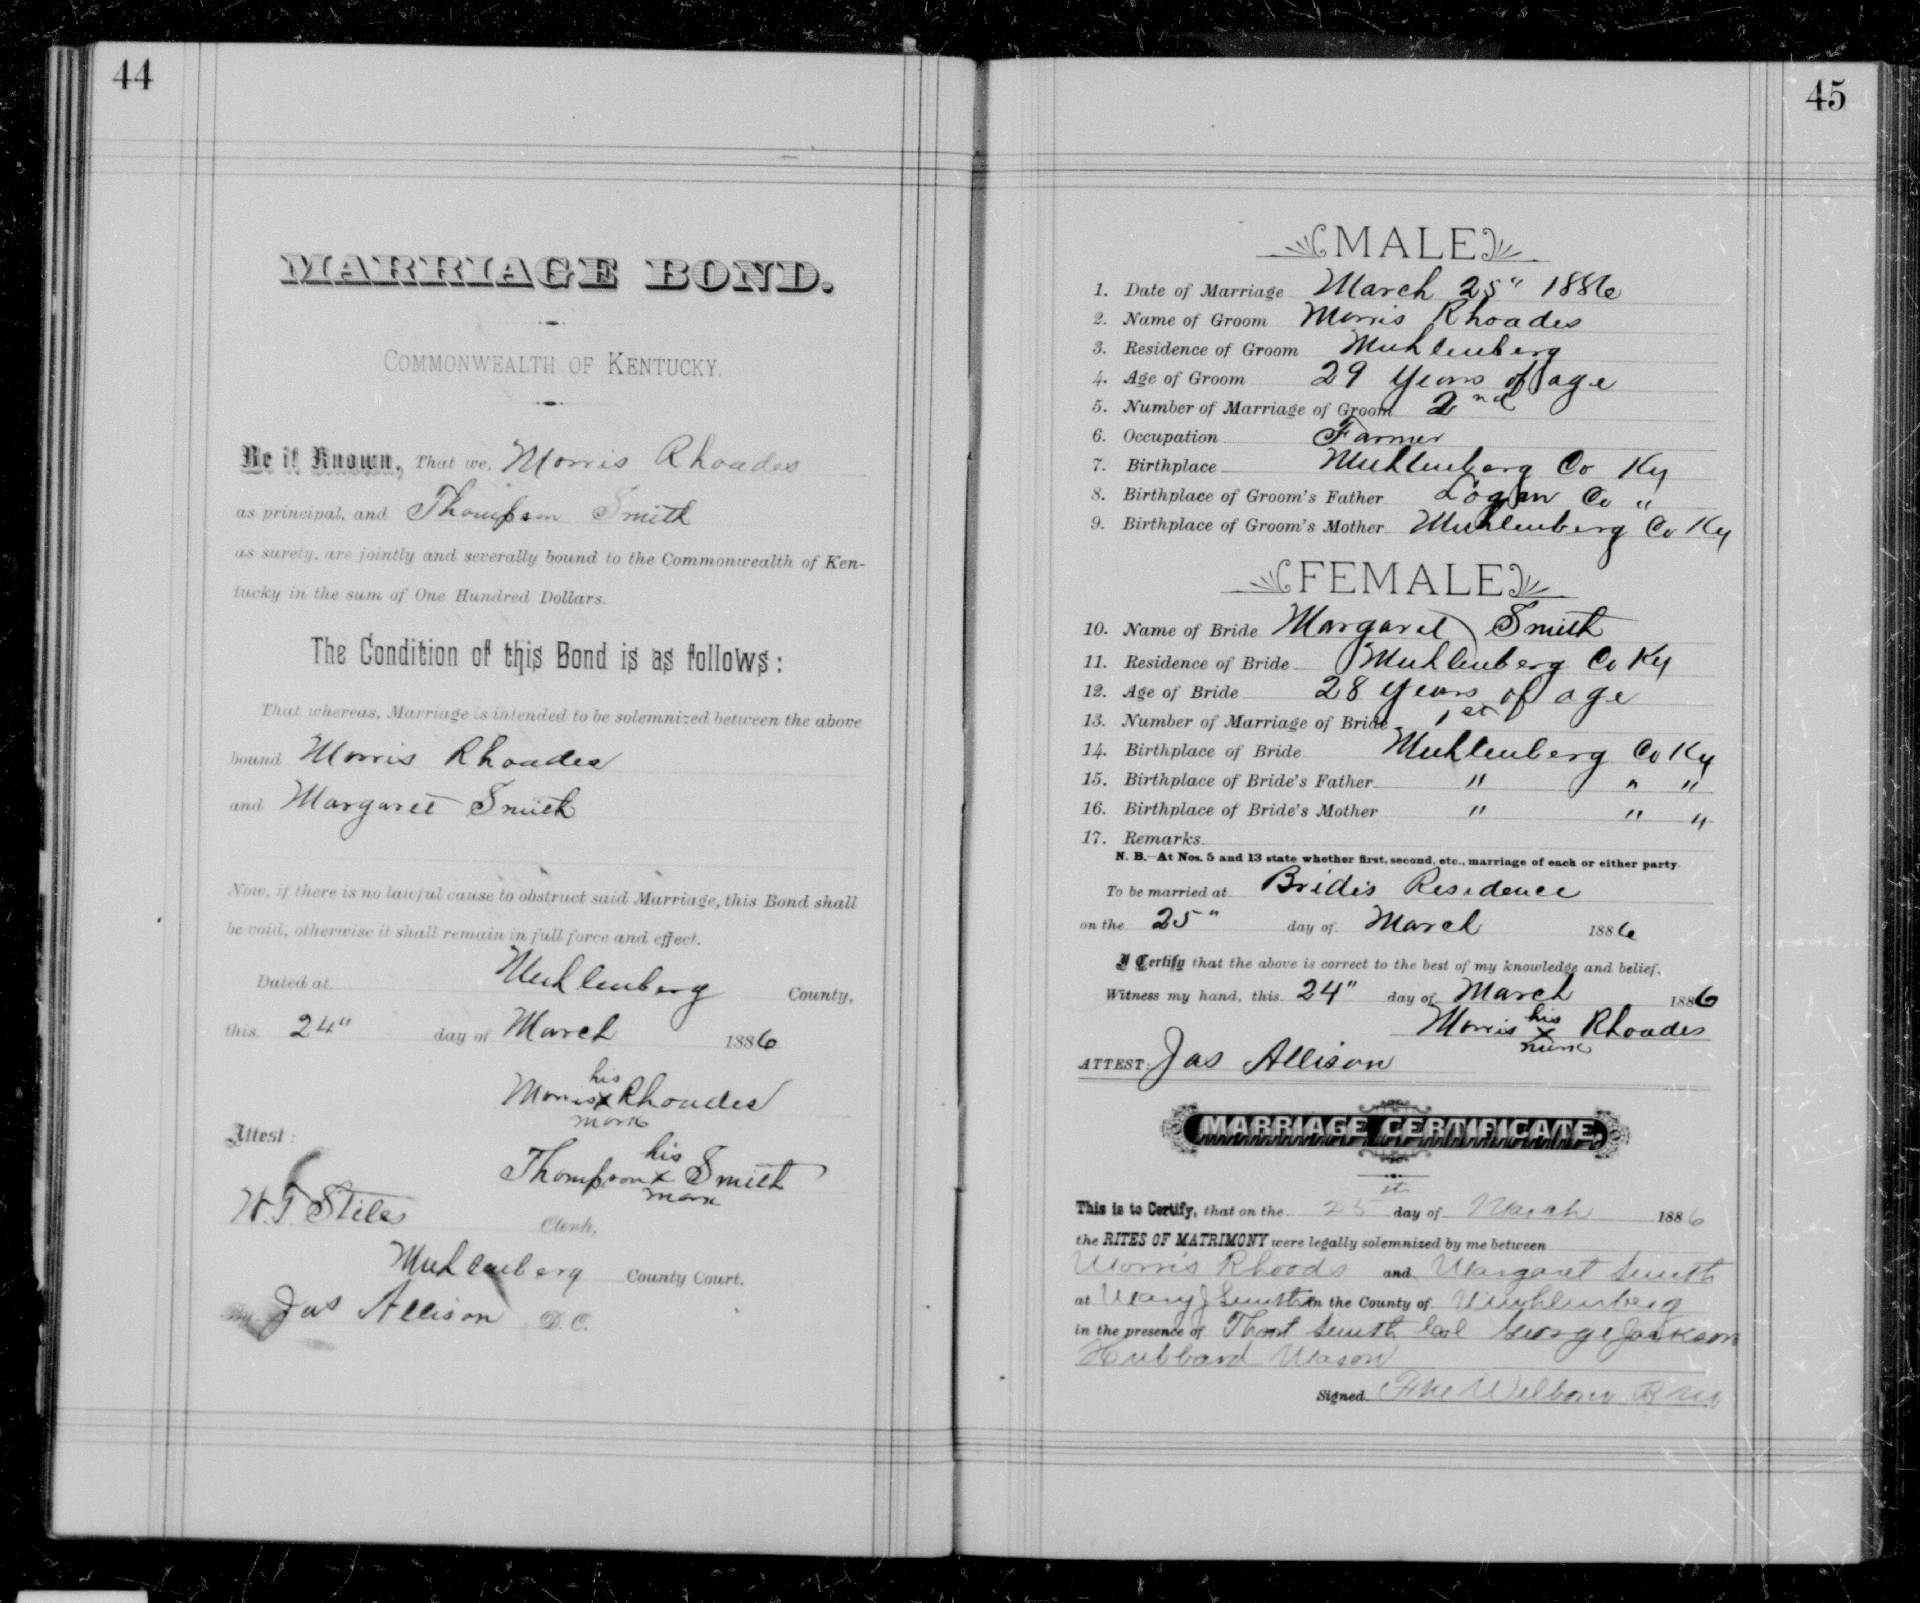 44
MARRIAGE BOND.
COMMONWEALTH OF KENTUCKY.
Be it Known, That we, Morris Rhoades
as principal, and Thompson Smith
as surety, are jointly and severally bound to the Commonwealth of Ken-
tucky in the sum of One Hundred Dollars.
The Condition of this Bond is as follows:
That whereas, Marriage is intended to be solemnized between the above
bound Morris Rhoades
and Margaret Smith
Now, if there is no lawful cause to obstruct said Marriage, this Bond shall
be void, otherwise it shall remain in full force and effect.
Dated at Muhlenberg County,
this 24" day of March 1886
his
Morris x Rhoades
mark
Attest:
his
Thompson x Smith
mark
W.T. Stiles Clerk,
Muhlenberg County Court.
By Jas Allison D. C.
45
MALE
1. Date of Marriage March 25" 1886
2. Name of Groom Morris Rhoades
3. Residence of Groom Muhlenberg
4. Age of Groom 29 years of age
5. Number of Marriage of Groom 2nd
6. Occupation Farmer
7. Birthplace Muhlenberg Co Ky
8. Birthplace of Groom's Father Logan Co "
9. Birthplace of Groom's Mother Muhlenberg Co Ky
FEMALE
10. Name of Bride Margaret Smith
11. Residence of Bride Muhlenberg Co Ky
12. Age of Bride 28 years of age
13. Number of Marriage of Bride 1st
14. Birthplace of Bride Muhlenberg Co Ky
15. Birthplace of Bride's Father " " "
16. Birthplace of Bride's Mother " " "
17. Remarks
N. B.—At Nos. 5 and 13 state whether first, second, etc., marriage of each or either party.
To be married at Brides Residence
on the 25" day of March 1886
I Certify that the above is correct to the best of my knowledge and belief.
Witness my hand, this 24" day of March 1886
his
Morris x Rhoades
mark
ATTEST: Jas Allison
MARRIAGE CERTIFICATE.
This is to Certify, that on the 25 day of March 1886
the RITES OF MATRIMONY were legally solemnized by me between
Morris Rhoods and Margaret Smith
at Mary J Smith in the County of Muhlenberg
in the presence of Smith George Jackson
Hubbard Mason
Signed Welborn